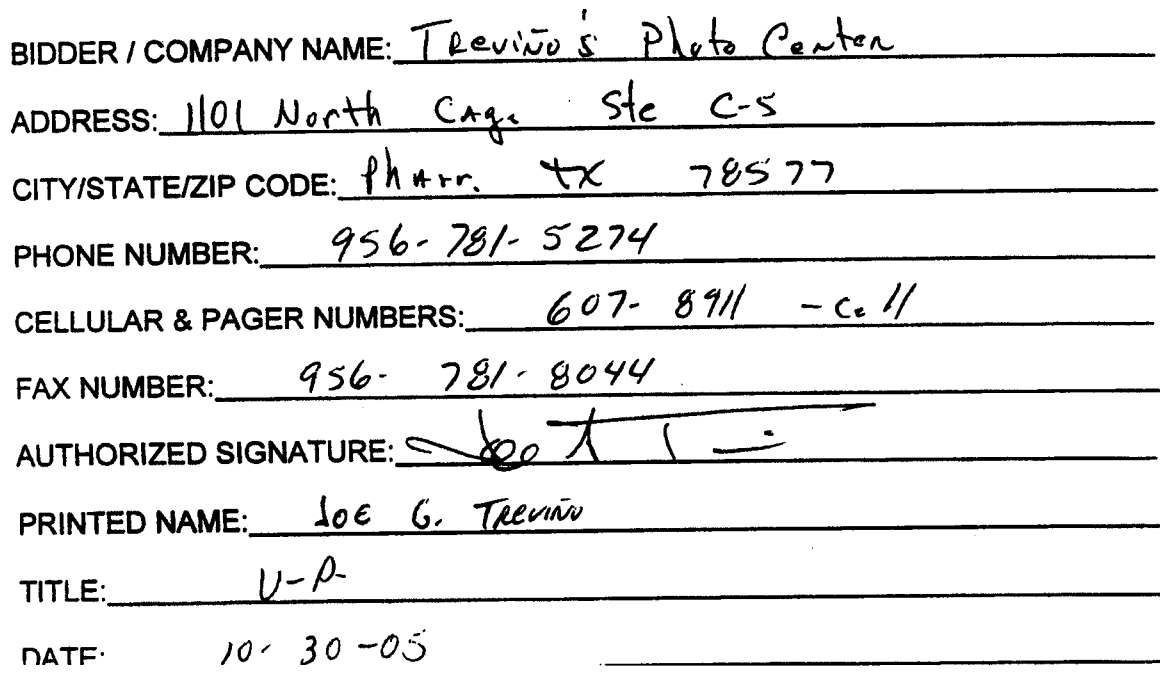 BIDDER / COMPANY NAME: Treviño's Photo Center
ADDRESS: 1101 North Cage Ste C-5
CITY/STATE/ZIP CODE: Pharr. tx 78577
PHONE NUMBER: 956-781-5274
CELLULAR & PAGER NUMBERS: 607-8911 - Cell
FAX NUMBER: 956-781-8044
AUTHORIZED SIGNATURE:
PRINTED NAME: Joe G. Treviño
TITLE: V-P-
DATE: 10-30-05